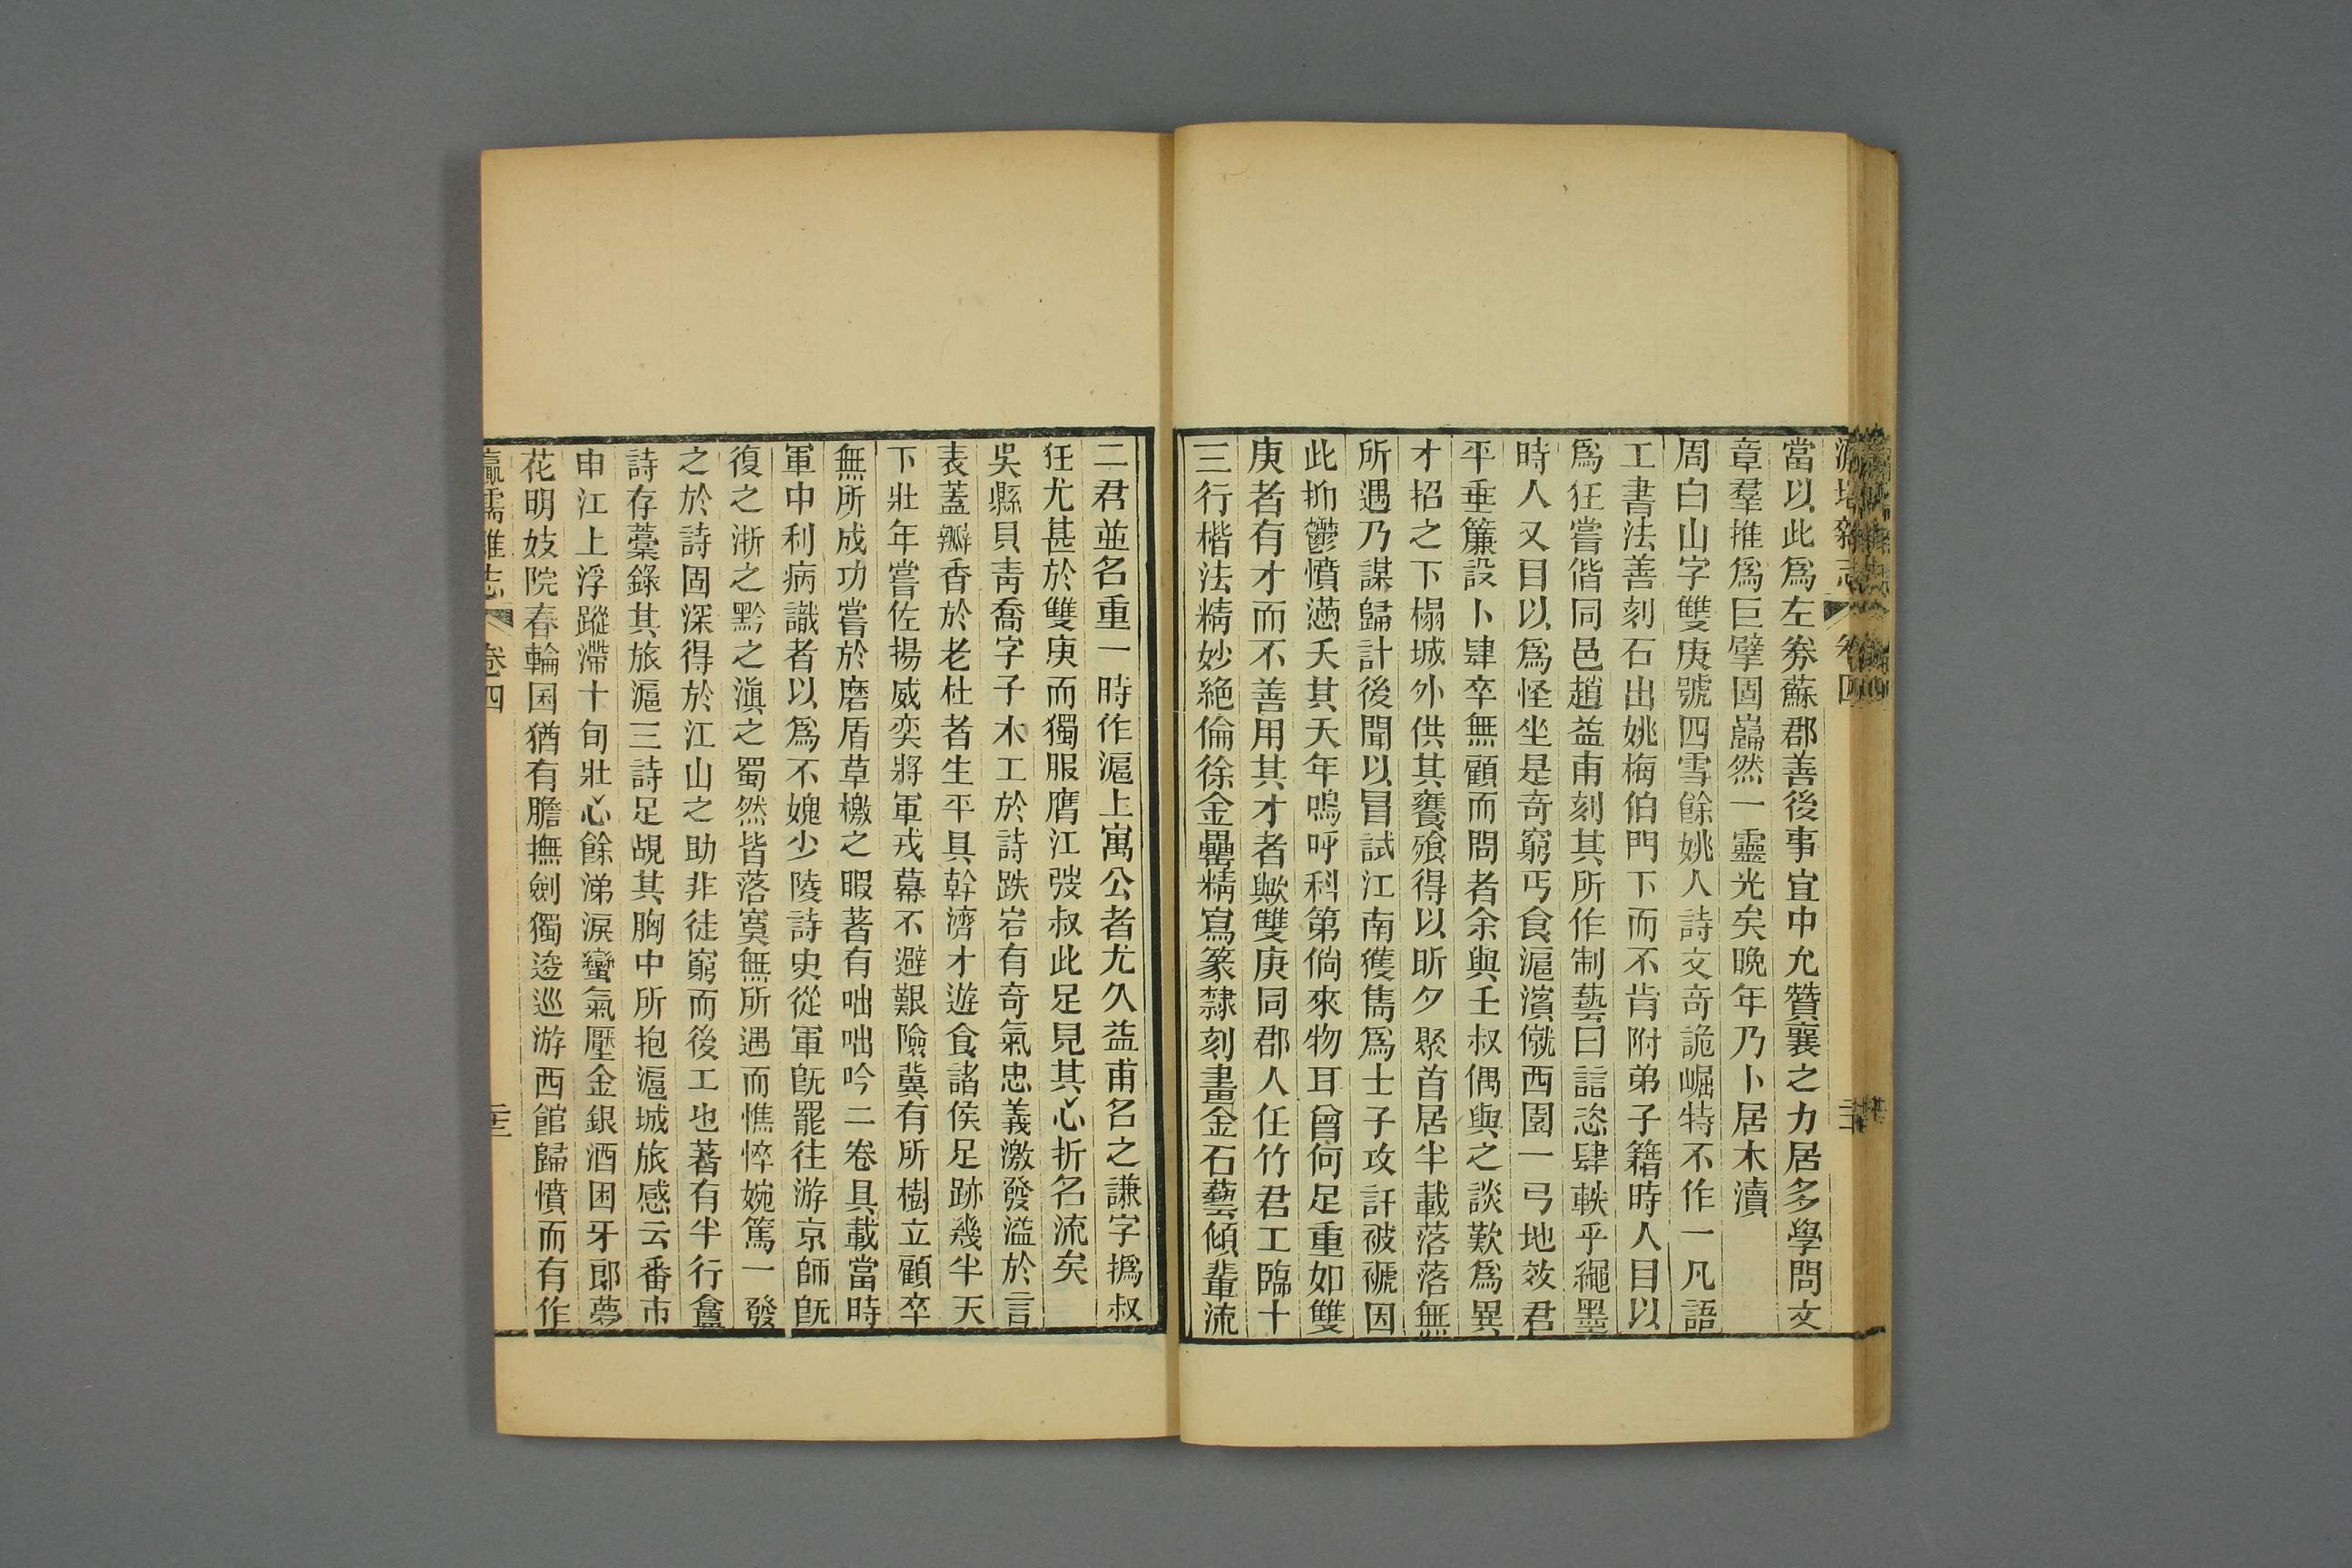 當以此爲左劵蘇郡善後事宜中允贊襄之力居多學問文
章羣推爲巨擘固巋然一靈光矣晚年乃卜居木瀆
周白山字雙庚號四雪餘姚人詩文奇詭崛特不作一凡語
工書法善刻石出姚梅伯門下而不肯附弟子籍時人目以
爲狂嘗偕同邑趙益甫刻其所作制藝曰詁恣肆軼乎繩墨
時人又目以爲怪坐是奇窮丐食滬濱僦西園一弓地效君
平垂簾設卜肆卒無顧而問者余與壬叔偶與之談歎爲異
才招之下榻城外供其饔飱得以昕夕聚首居半載落落無
所遇乃謀歸計後聞以冒試江南獲雋爲士子攻訐被褫因
此抑鬱憤懣夭其天年嗚呼科第倘來物耳曾何足重如雙
庚者有才而不善用其才者歟雙庚同郡人任竹君工臨十
三行楷法精妙絕倫徐金罍精寫篆隸刻畫金石藝傾輩流
二君並名重一時作滬上寓公者尤久益甫名之謙字撝叔
狂尤甚於雙庚而獨服膺江弢叔此足見其心折名流矣
吳縣貝青喬字子木工於詩跌宕有奇氣忠義激發溢於言
表蓋瓣香於老杜者生平具幹濟才遊食諸侯足跡幾半天
下壯年嘗佐揚威奕將軍戎幕不避艱險冀有所樹立顧卒
無所成功嘗於磨盾草檄之暇著有咄咄吟二卷具載當時
軍中利病識者以爲不媿少陵詩史從軍旣罷往游京師旣
復之浙之黔之滇之蜀然皆落寞無所遇而憔悴婉篤一發
之於詩固深得於江山之助非徒窮而後工也著有半行盦
詩存藳錄其旅滬三詩足覘其胸中所抱滬城旅感云番市
申江上浮蹤滯十旬壯心餘涕淚蠻氣壓金銀酒困牙郎夢
花明妓院春輪囷猶有膽撫劍獨逡巡游西館歸憤而有作
瀛壖雜志 卷四